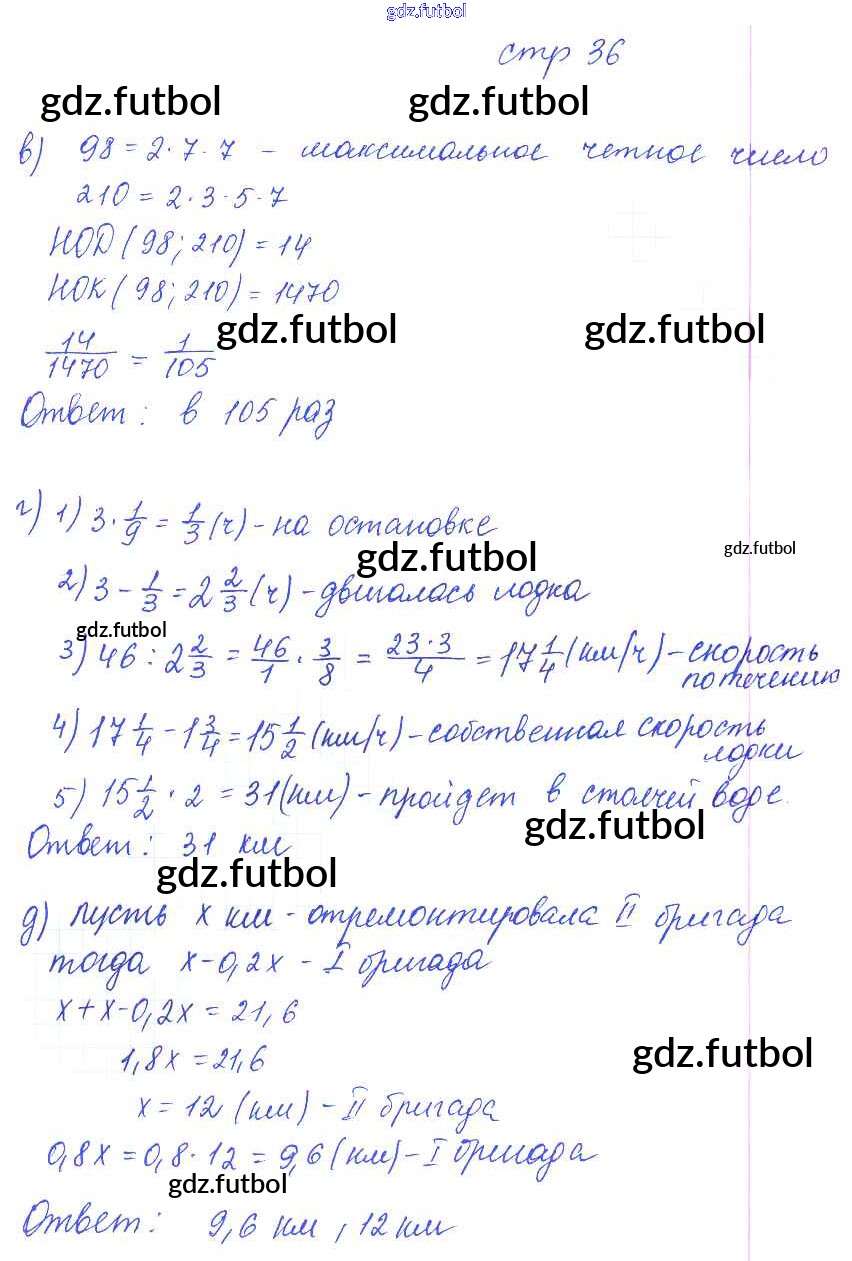 gdz.futbol
стр 36
gdz.futbol gdz.futbol
в) 98 = 2·7·7 – максимальное четное число
210 = 2·3·5·7
НОД (98; 210) = 14
НОК (98; 210) = 1470
14/1470 = 1/105
gdz.futbol gdz.futbol
Ответ: в 105 раз
г) 1) 3 · 1/9 = 1/3 (ч) – на остановке
gdz.futbol gdz.futbol
2) 3 – 1/3 = 2 2/3 (ч) – двигалась лодка
gdz.futbol
3) 46 : 2 2/3 = 46/1 · 3/8 = 23·3/4 = 17 1/4 (км/ч) – скорость
по течению
4) 17 1/4 – 1 3/4 = 15 1/2 (км/ч) – собственная скорость
лодки
5) 15 1/2 · 2 = 31 (км) – пройдет в стоячей воде.
gdz.futbol
Ответ: 31 км
gdz.futbol
д) пусть x км – отремонтировала II бригада
тогда x – 0,2x – I бригада
x + x – 0,2x = 21,6
1,8x = 21,6
gdz.futbol
x = 12 (км) – II бригада
0,8x = 0,8 · 12 = 9,6 (км) – I бригада
gdz.futbol
Ответ: 9,6 км, 12 км